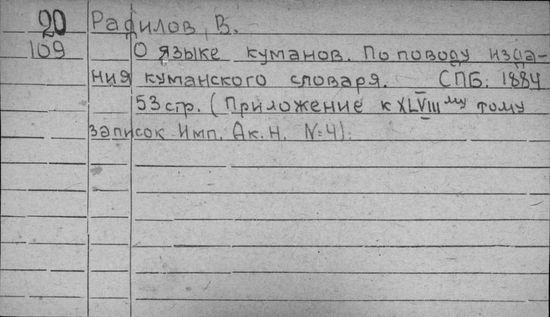 20 Радилов, В.
109 О языке куманов. По поводу изда-
ния куманского словаря. СПб. 1884
53 стр. (Приложение к XLVIIIму тому
записок Имп. Ак. Н. №4).